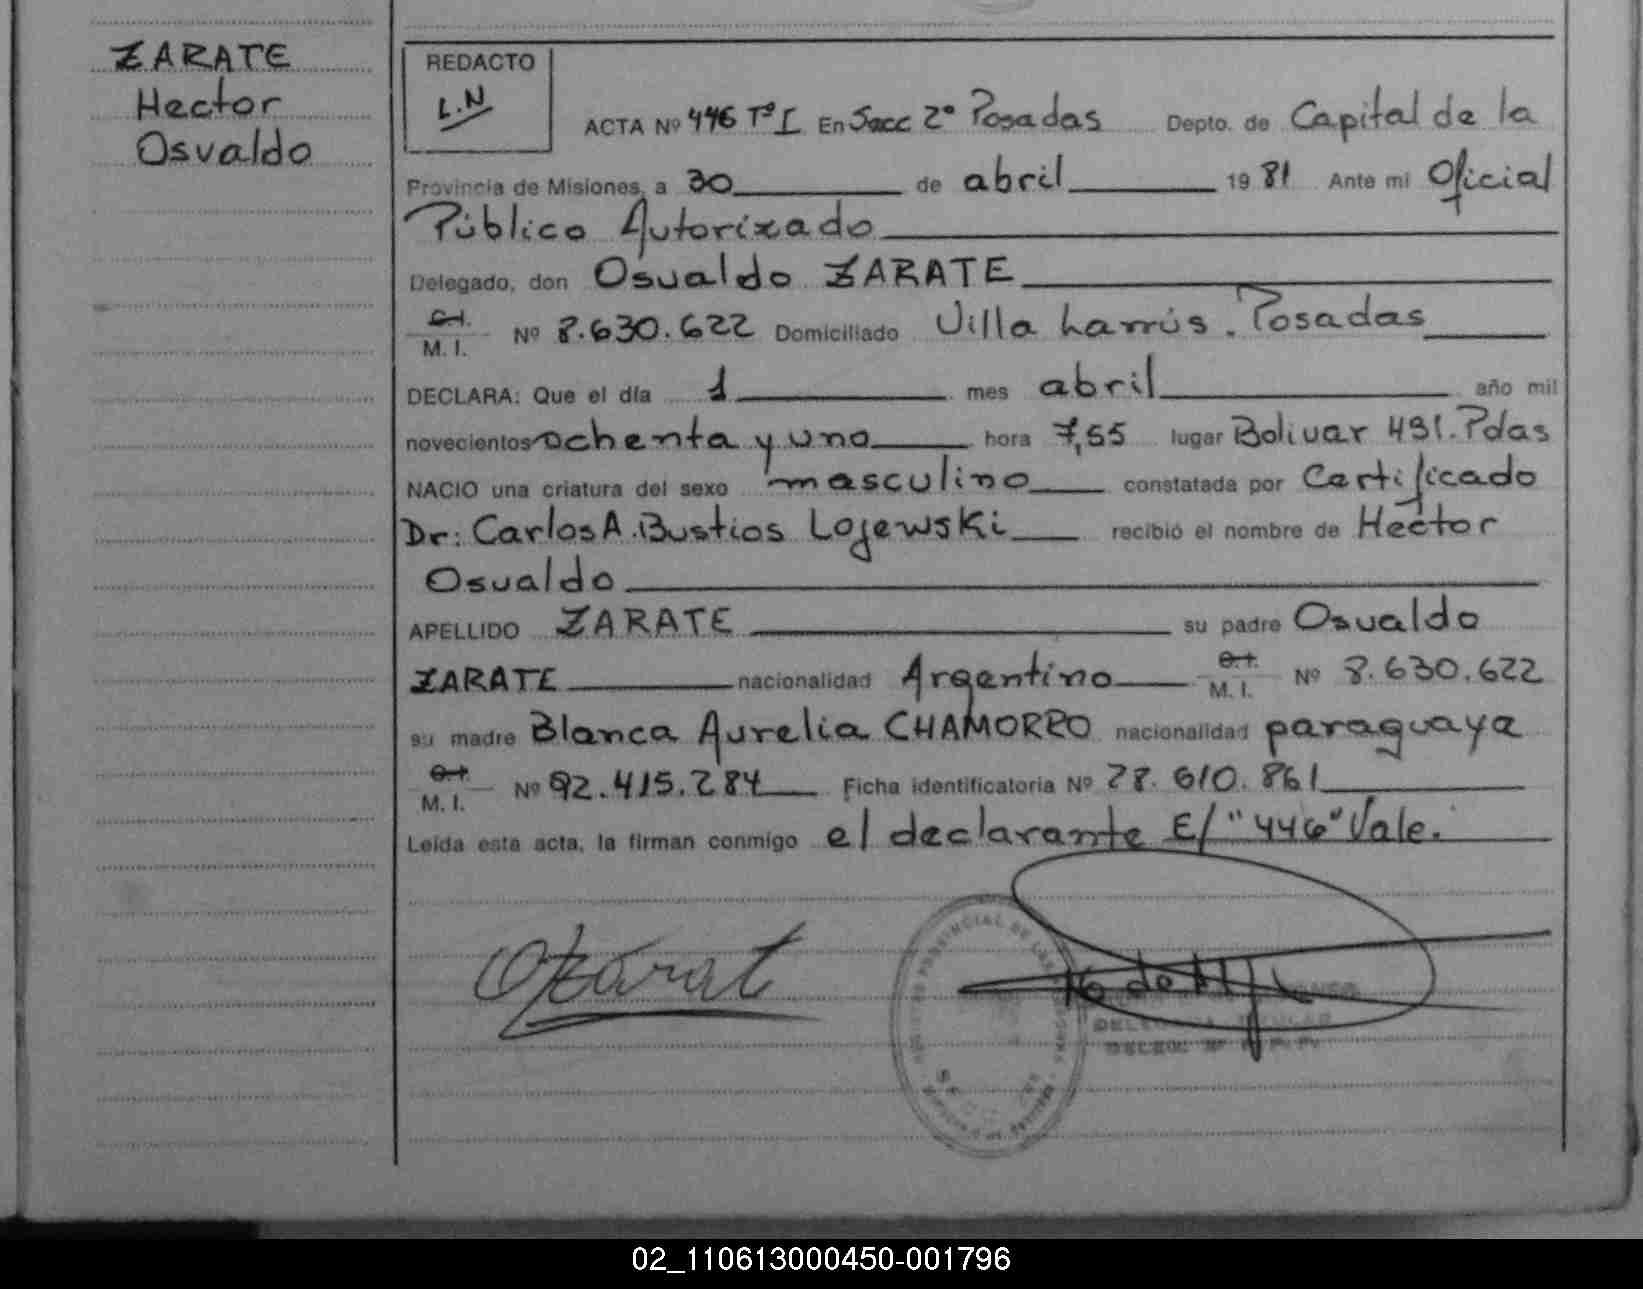 ZARATE
Hector
Osvaldo
REDACTO
L.N
ACTA Nº 446 Tº I En Secc 2º Posadas Depto. de Capital de la
Provincia de Misiones, a 30 de abril 1981 Ante mi Oficial
Público Autorizado
Delegado, don Osvaldo ZARATE
C.I.
M. I. Nº 8.630.622 Domiciliado Villa Larrús. Posadas
DECLARA: Que el día 1 mes abril año mil
novecientos ochenta y uno hora 7,55 lugar Bolivar 431. Pdas
NACIO una criatura del sexo masculino constatada por Certificado
Dr: Carlos A. Bustios Lojewski recibió el nombre de Hector
Osvaldo
APELLIDO ZARATE su padre Osvaldo
ZARATE nacionalidad Argentino C.I.
M. I. Nº 8.630.622
su madre Blanca Aurelia CHAMORRO nacionalidad paraguaya
C.I.
M. I. Nº 92.415.284 Ficha identificatoria Nº 28.610.861
Leída esta acta, la firman conmigo el declarante E/ "446" Vale.
OZárat
PROVINCIAL DE
02_110613000450-001796